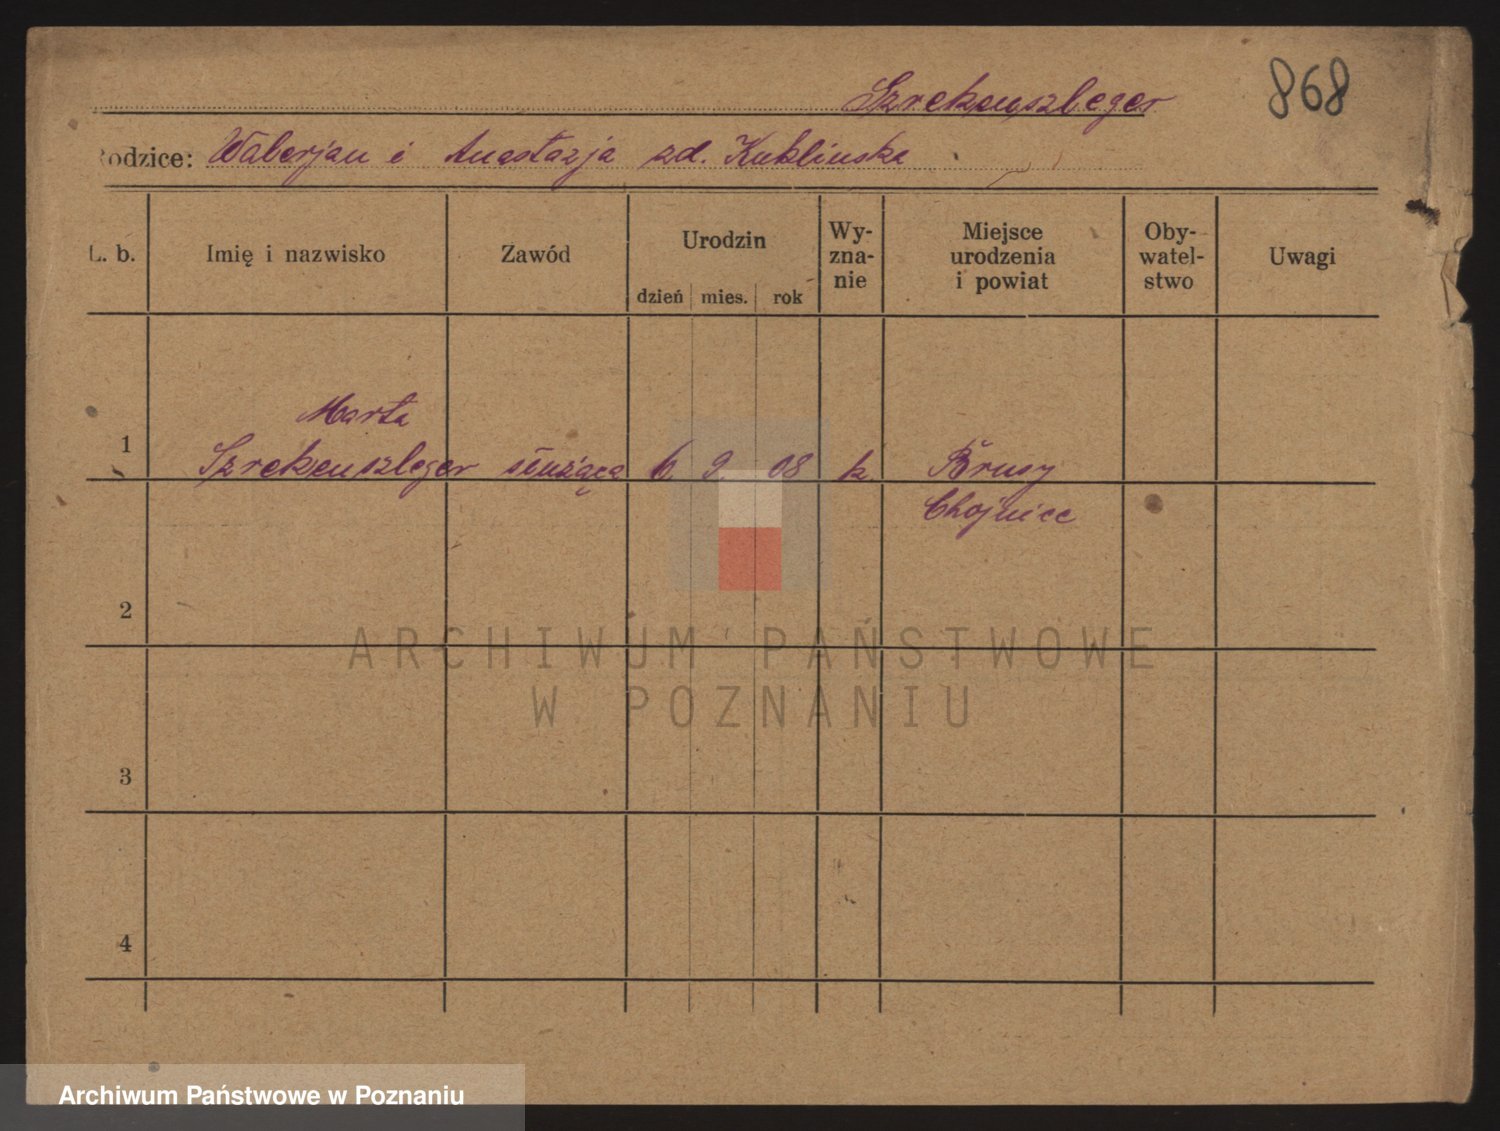 Szrekenszleger 868
Rodzice: Walerjan i Anastazja zd. Kuklinska
L. b. Imię i nazwisko Zawód Urodzin dzień mies. rok Wy-zna-nie Miejsce urodzenia i powiat Oby-watel-stwo Uwagi
Marta
1 Szrekenszleger służąca 6 9. 08 k. Brusy
Chojnice
2
3
4
ARCHIWUM PAŃSTWOWE
W POZNANIU
Archiwum Państwowe w Poznaniu